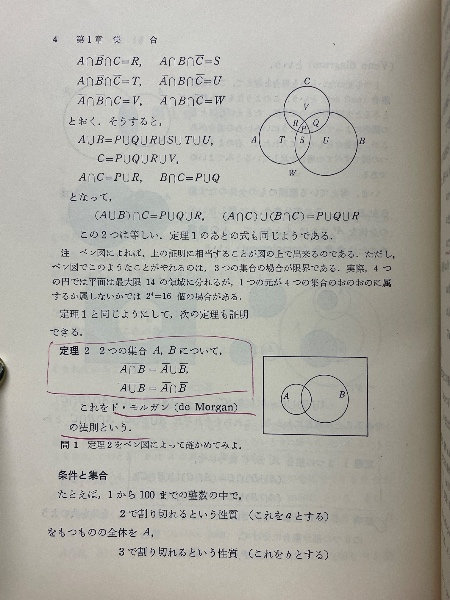 4 第1章 集 合
A∩B̅∩C=R, A∩B∩C̅=S
A∩B̅∩C̅=T, A̅∩B∩C̅=U
A̅∩B̅∩C=V, A̅∩B̅∩C̅=W
とおく. そうすると,
A∪B=P∪Q∪R∪S∪T∪U,
C=P∪Q∪R∪V,
A∩C=P∪R, B∩C=P∪Q
となって,
(A∪B)∩C=P∪Q∪R, (A∩C)∪(B∩C)=P∪Q∪R
この2つは等しい. 定理1のあとの式も同じようである.
C
V
R Q
P
A T S U B
W
注 ベン図によれば, 上の証明に相当することが図の上で出来るのである. ただし,
ベン図でこのようなことがやれるのは, 3つの集合の場合が限界である. 実際, 4つ
の円では平面は最大限 14 の領域に分れるが, 1つの元が4つの集合のおのおのに属
するか属しないかでは 2⁴=16 個の場合がある.
定理1と同じようにして, 次の定理も証明
できる.
定理 2 2つの集合 A, B について,
A̅∩̅B̅=A̅∪B̅,
A̅∪̅B̅=A̅∩B̅
これをド・モルガン (de Morgan)
の法則という.
A B
問1 定理2をベン図によって確かめてみよ.
条件と集合
たとえば, 1から100までの整数の中で,
2で割り切れるという性質 (これをaとする)
をもつものの全体を A,
3で割り切れるという性質 (これをbとする)